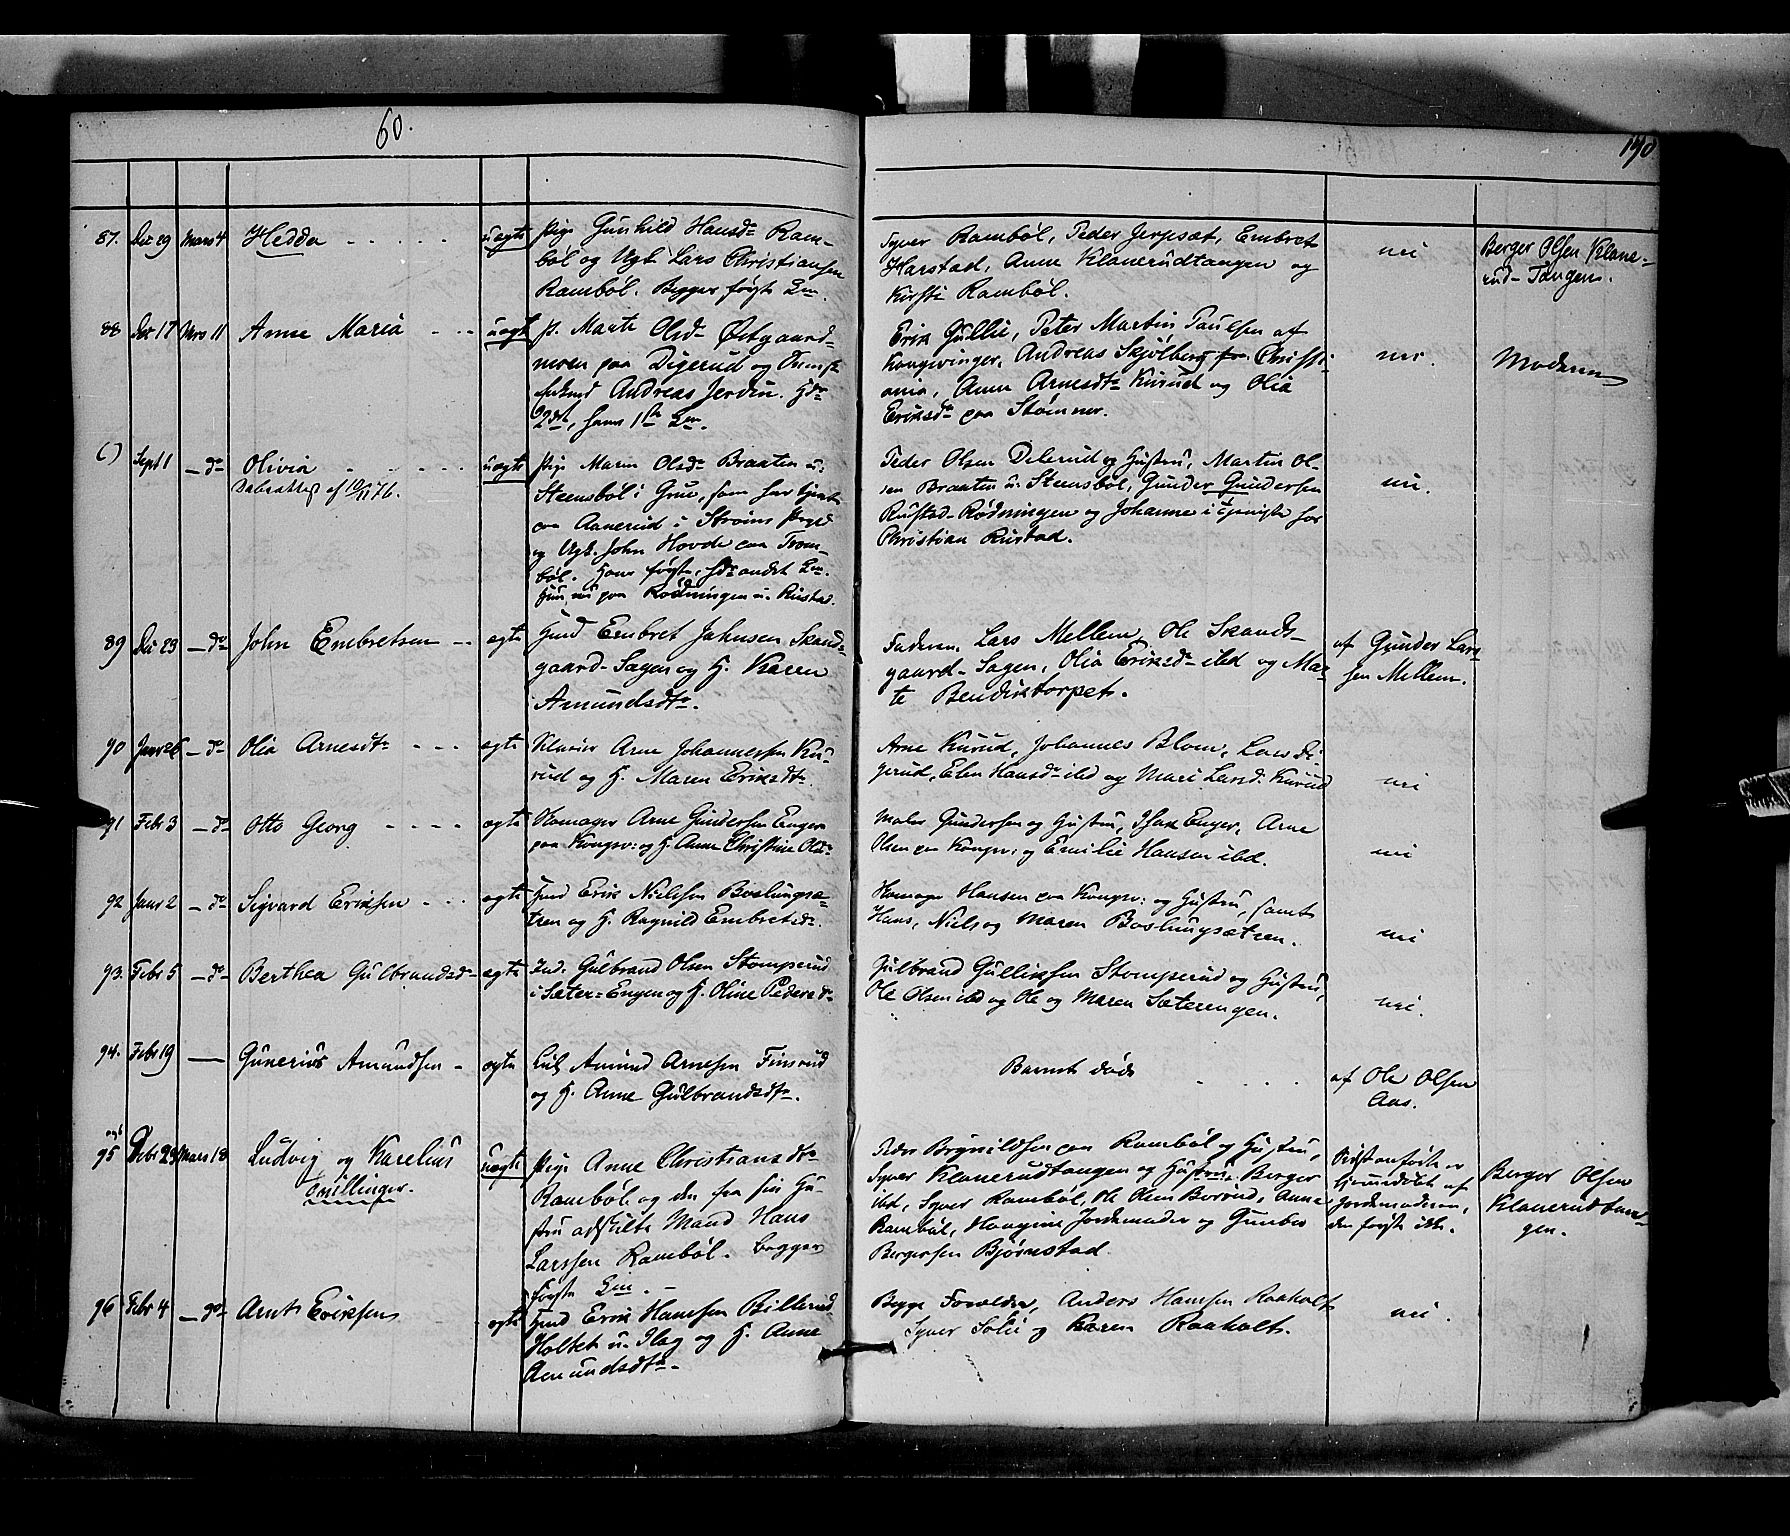 60.
190
87. Dec 29 Mars 4 Hedda uægte Pige Gunhild Hansdr Ram-
bøl og Ugk Lars Christiansen
Rambøl. Begges første Lm.
Syver Rambøl, Peder Jerpset, Embret
Harstad, Anne Klanerudtangen og
Kirsti Rambøl.
nei
Berger Olsen Klane-
rud-Tangen.
88 Dec 17 Mrs 11 Anne Maria uægte p. Marte Olsdr Østgaard-
moen paa Digerud og
Andreas Jerdin. Hds
2det, hans 1ste Lm.
Erik Gullie, Peter Martin Paulsen af
Kongsvinger, Andreas Skjølberg fra Christi-
ania, Anne Arnesdtr Kurud og Olia
Eriksdr paa Stømner.
nei.
Moderen
() Sept 1 - do Olivia uægte Pige Maren Olsdr Braaten u.
Daabsattest af 10/11 76.
Steensbøl i Grue, som har tjent
paa Aanerud i Strøms Præstgd
og Ugk. John Hovde paa Trom-
bøl. Hans første, hds andet Lm.
Hun nu paa Rødningen u. Rustad.
Peder Olsen Delerud og Hustru, Martin Ol-
sen Braaten u. Steensbøl, Gunder Gundersen
Rustad-Rødningen og Johanne i Tjeniste hos
Christian Rustad.
nei.
89 Dec 23 - do John Embretsen ægte Hmd Embret Johnsen Skands-
gaard-Sagen og H. Karen
Amundsdtr.
Faderen, Lars Mellem, Ole Skands-
gaard-Sagen, Olia Eriksdr ibd og Mar-
te Bendikstorpet.
af Gunder Lars-
sen Mellem.
90 Janr 26 - do Olia Arnesdtr ægte Arne Johannessen Ku-
rud og H. Maren Eriksdtr.
Arne Kurud, Johannes Blom, Lars Di-
gerud, Elen Hansdr ibd og Mari Larsd. Kurud
nei
91 Febr 3 - do Otto Georg ægte Skomager Arne Gundersen Enger
paa Kongsv: og H. Anne Christine Olsdr
Maler Gundersen og Hustru, Isak Enger, Arne
Olsen paa Kongsv: og Emilie Hansen ibd.
nei
92 Janr 2 - do Sigvard Eriksen ægte Hmd Erik Nielsen Boslungsæ-
tren og H. Ragnild Embretsdr.
Skomager Hansen paa Kongsv: og Hustru, samt
Hans, Niels og Maren Boslungsætren.
nei
93. Febr 5 - do Berthea Gulbrandsd ægte Ind. Gulbrand Olsen Stomperud
i Sæter-Engen og H. Oline Pedersdr
Gulbrand Gulliksen Stomperud og Hustru,
Ole Olsen ibd og Ole og Maren Sæterengen.
nei.
94. Febr 19 — Gunerius Amundsen ægte Amund Arnesen Finsrud
og H. Anne Gulbrandsdtr.
Barnet død
af Ole Olsen
Aas.
95 Febr 29 Mars 18 Ludvig og Karelius
Tvillinger.
uægte Pige Anne Christiansdtr
Rambøl og den fra sin Hu-
stru adskilte Mand Hans
Larssen Rambøl. begges
første Lm.
Peder Brynildsen paa Rambøl og Hustru,
Syver Klanerudtangen og Hustru, Berger
ibd, Syver Rambøl, Ole Olsen Berørud, Anne
Rambøl, Hovgine Jordemoder og Gunder
Bergersen Bjørnstad.
Først anførte er
hjemmedøbt af
Jordemoderen,
den første ikke.
Berger Olsen
Klanerudtan-
gen.
96 Febr 4 - do Arnt Eriksen ægte Hmd Erik Hansen Billerud
Holtet u. Ilag og H. Anne
Amundsdtr.
Begge Forældre, Anders Hanssen Raaholt
Syver Solie og Karen Raaholt.
nei.